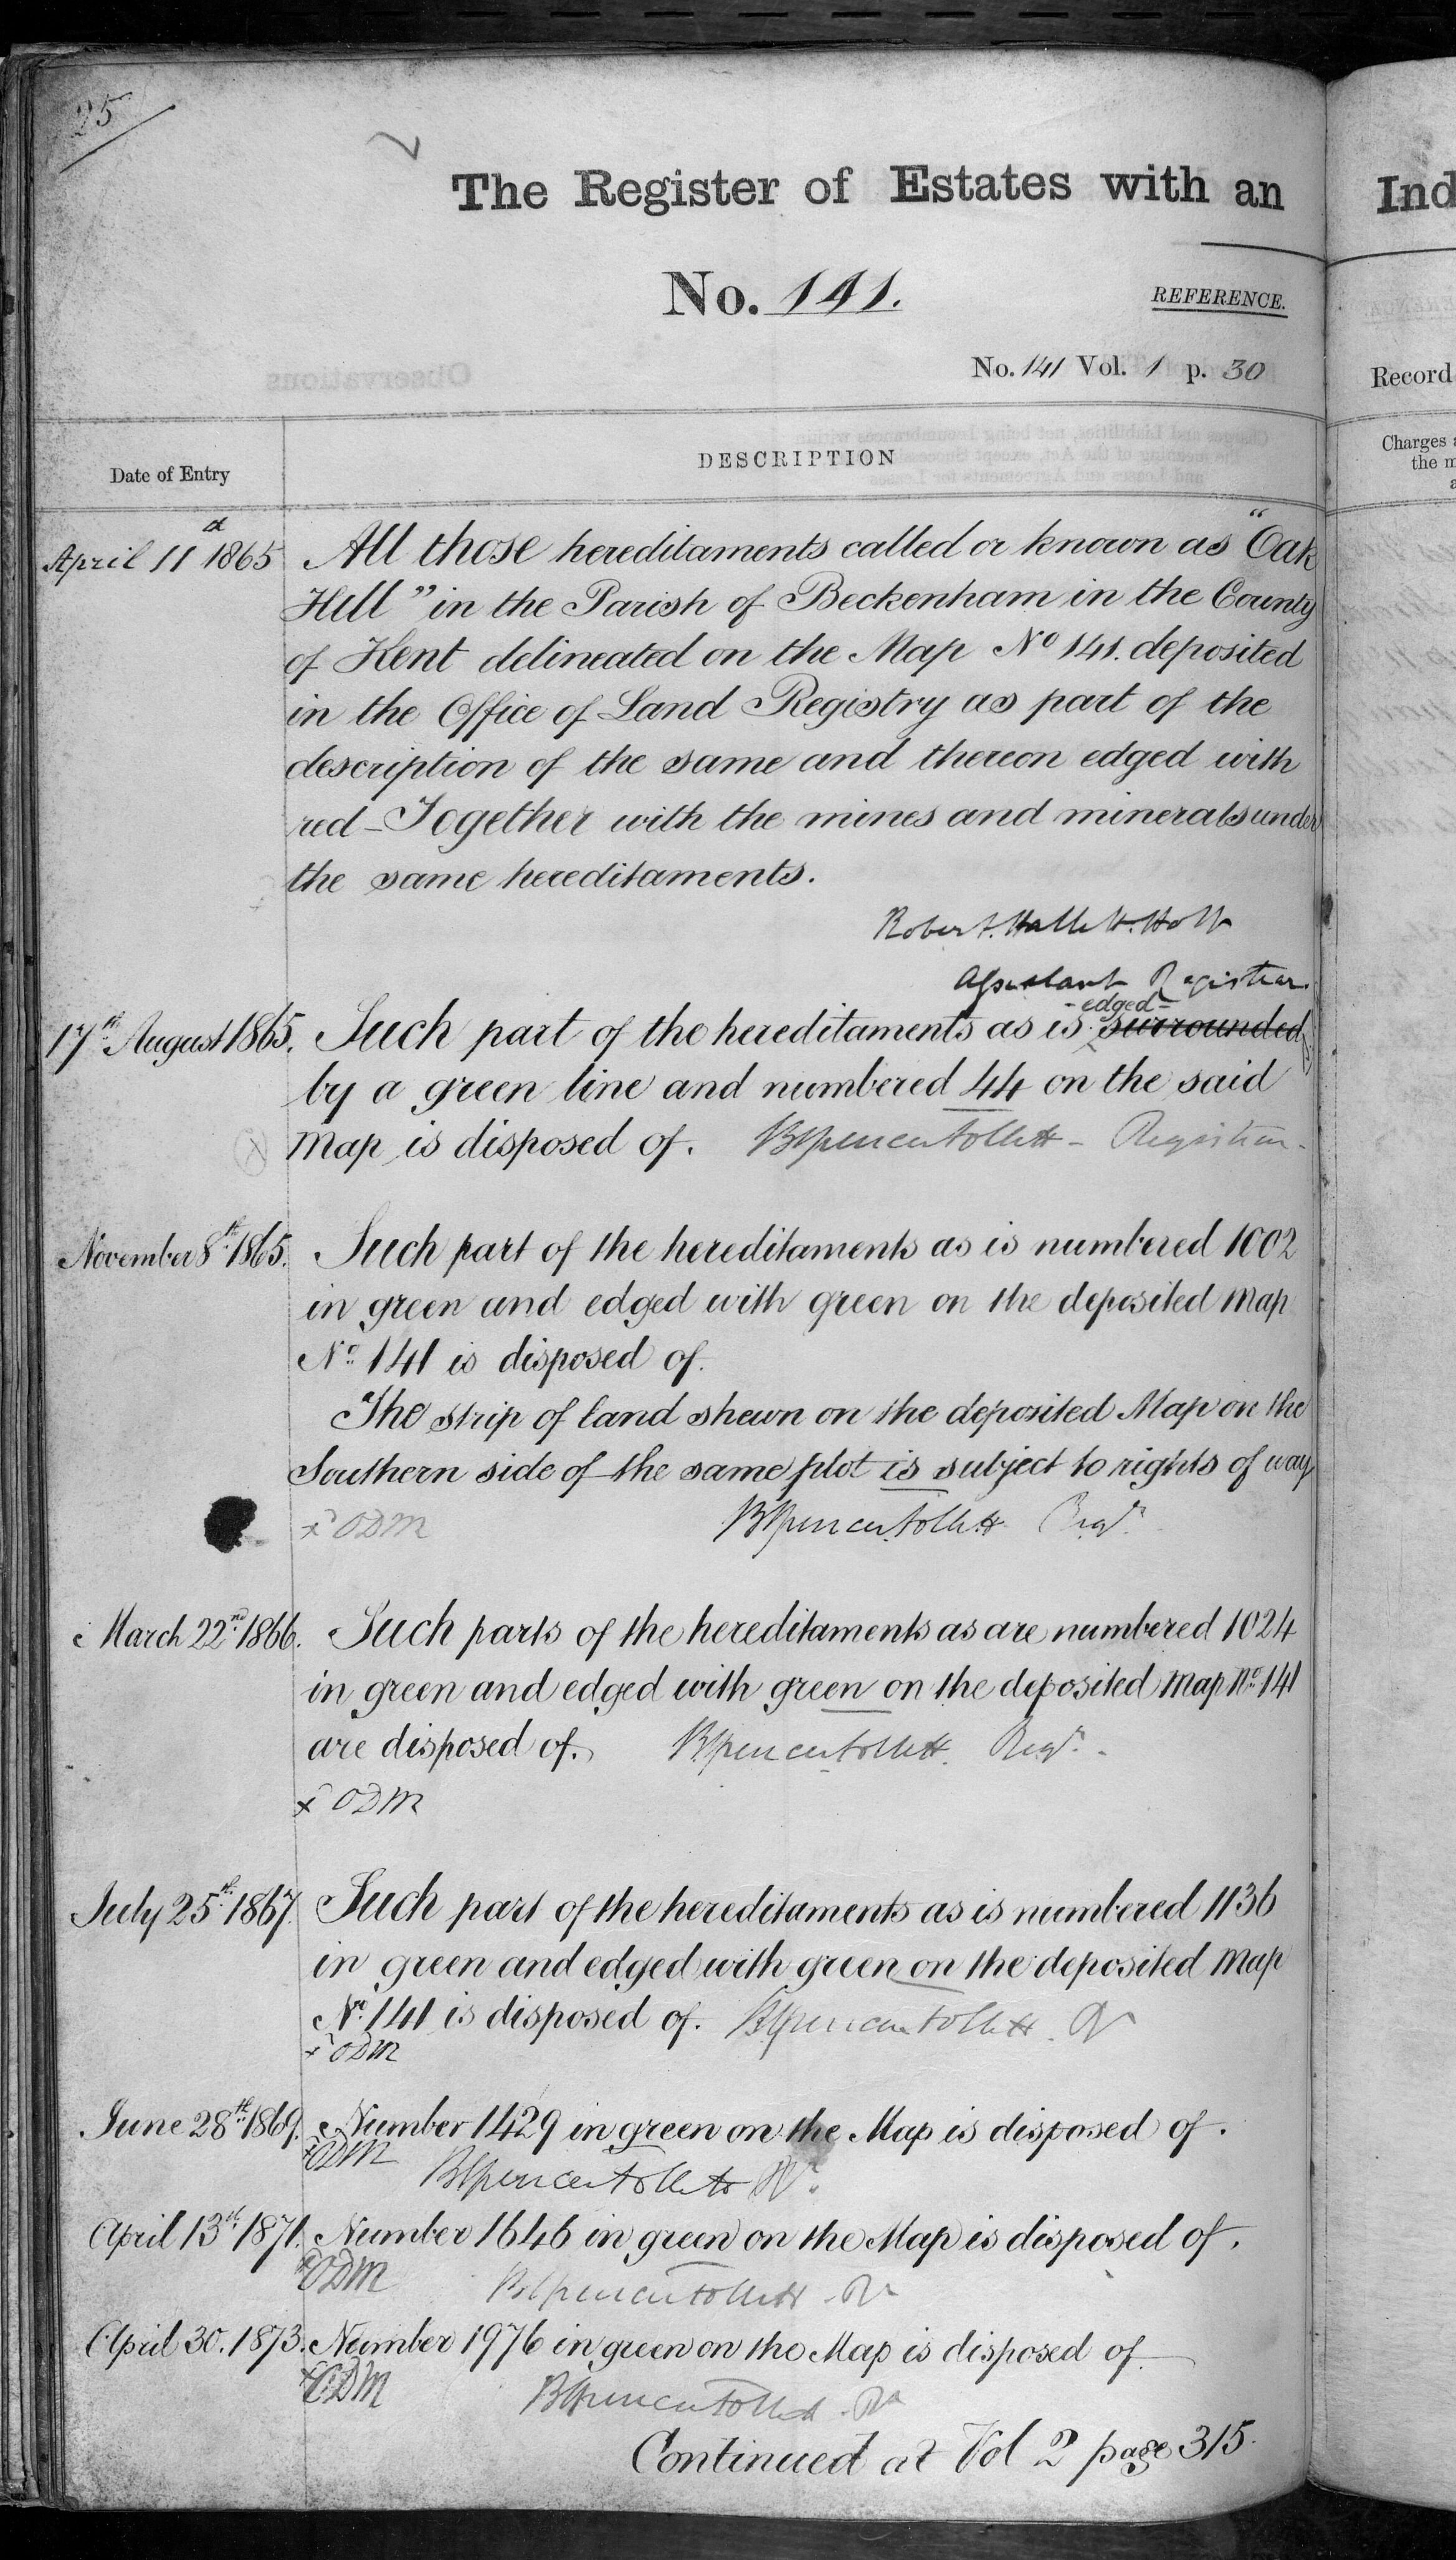 25
The Register of Estates with an
Ind
No. 141.
REFERENCE.
No. 141 Vol. 1 p. 30
Record
Date of Entry
DESCRIPTION
Charges
the m
April 11 1865 All those hereditaments called or known as "Oak
Hill" in the Parish of Beckenham in the County
of Kent delineated on the Map No 141. deposited
in the Office of Land Registry as part of the
description of the same and thereon edged with
red - Together with the mines and minerals under
the same hereditaments.
Robert Hallett Holt
Assistant Registrar.
-edged-
17th August 1865. Such part of the hereditaments as is surrounded
by a green line and numbered 44 on the said
Map is disposed of. BSpencerfollett - Registrar.
November 8th 1865. Such part of the hereditaments as is numbered 1002
in green and edged with green on the deposited Map
No. 141 is disposed of.
The strip of land shewn on the deposited Map on the
Southern side of the same plot is subject to rights of way
x ODM BSpencerfollett Regr.
March 22nd 1866. Such parts of the hereditaments as are numbered 1024
in green and edged with green on the deposited Map No. 141
are disposed of. BSpencerfollett. Regr.
x ODM
July 25th 1867. Such part of the hereditaments as is numbered 1136
in green and edged with green on the deposited Map
No. 141 is disposed of. BSpencerfollett. Rr
x ODM
June 28th 1869. Number 1429 in green on the Map is disposed of.
x ODM BSpencerfollett Rr.
April 13th 1871. Number 1646 in green on the Map is disposed of.
x ODM BSpencerfollett. Rr
April 30. 1873. Number 1976 in green on the Map is disposed of.
x ODM BSpencerfollett. Rr
Continued at Vol 2 page 315.